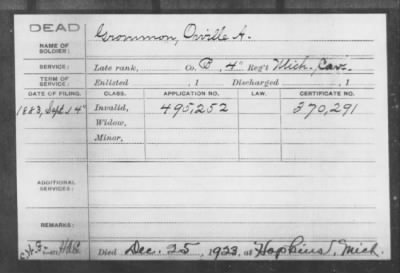 DEAD
NAME OF SOLDIER: Grommon, Orville A.
SERVICE: Late rank, Co. C, 4" Reg't Mich. Cav.
TERM OF SERVICE: Enlisted , 1 Discharged , 1
DATE OF FILING. CLASS. APPLICATION NO. LAW. CERTIFICATE NO.
1883, Sept. 4" Invalid, 495,252 370,291
Widow,
Minor,
ADDITIONAL SERVICES:
REMARKS:
Died Dec. 25, 1923, at Hopkins, Mich.